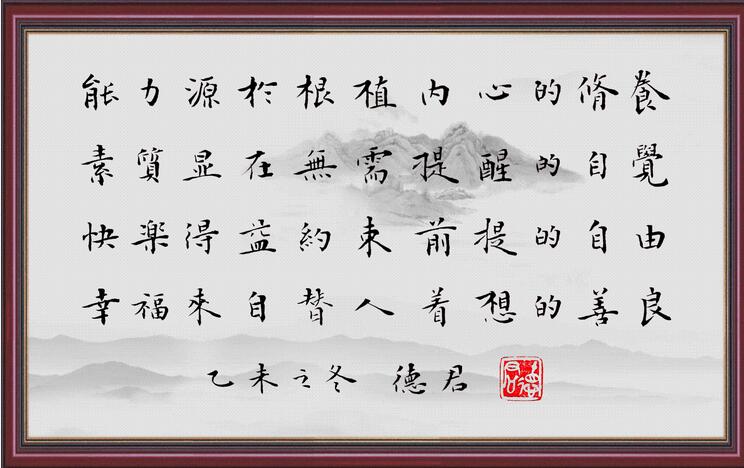 能力源於根植内心的脩養
素質显在無需提醒的自覺
快楽得益約束前提的自由
幸福來自替人着想的善良
乙未之冬 德君
德君